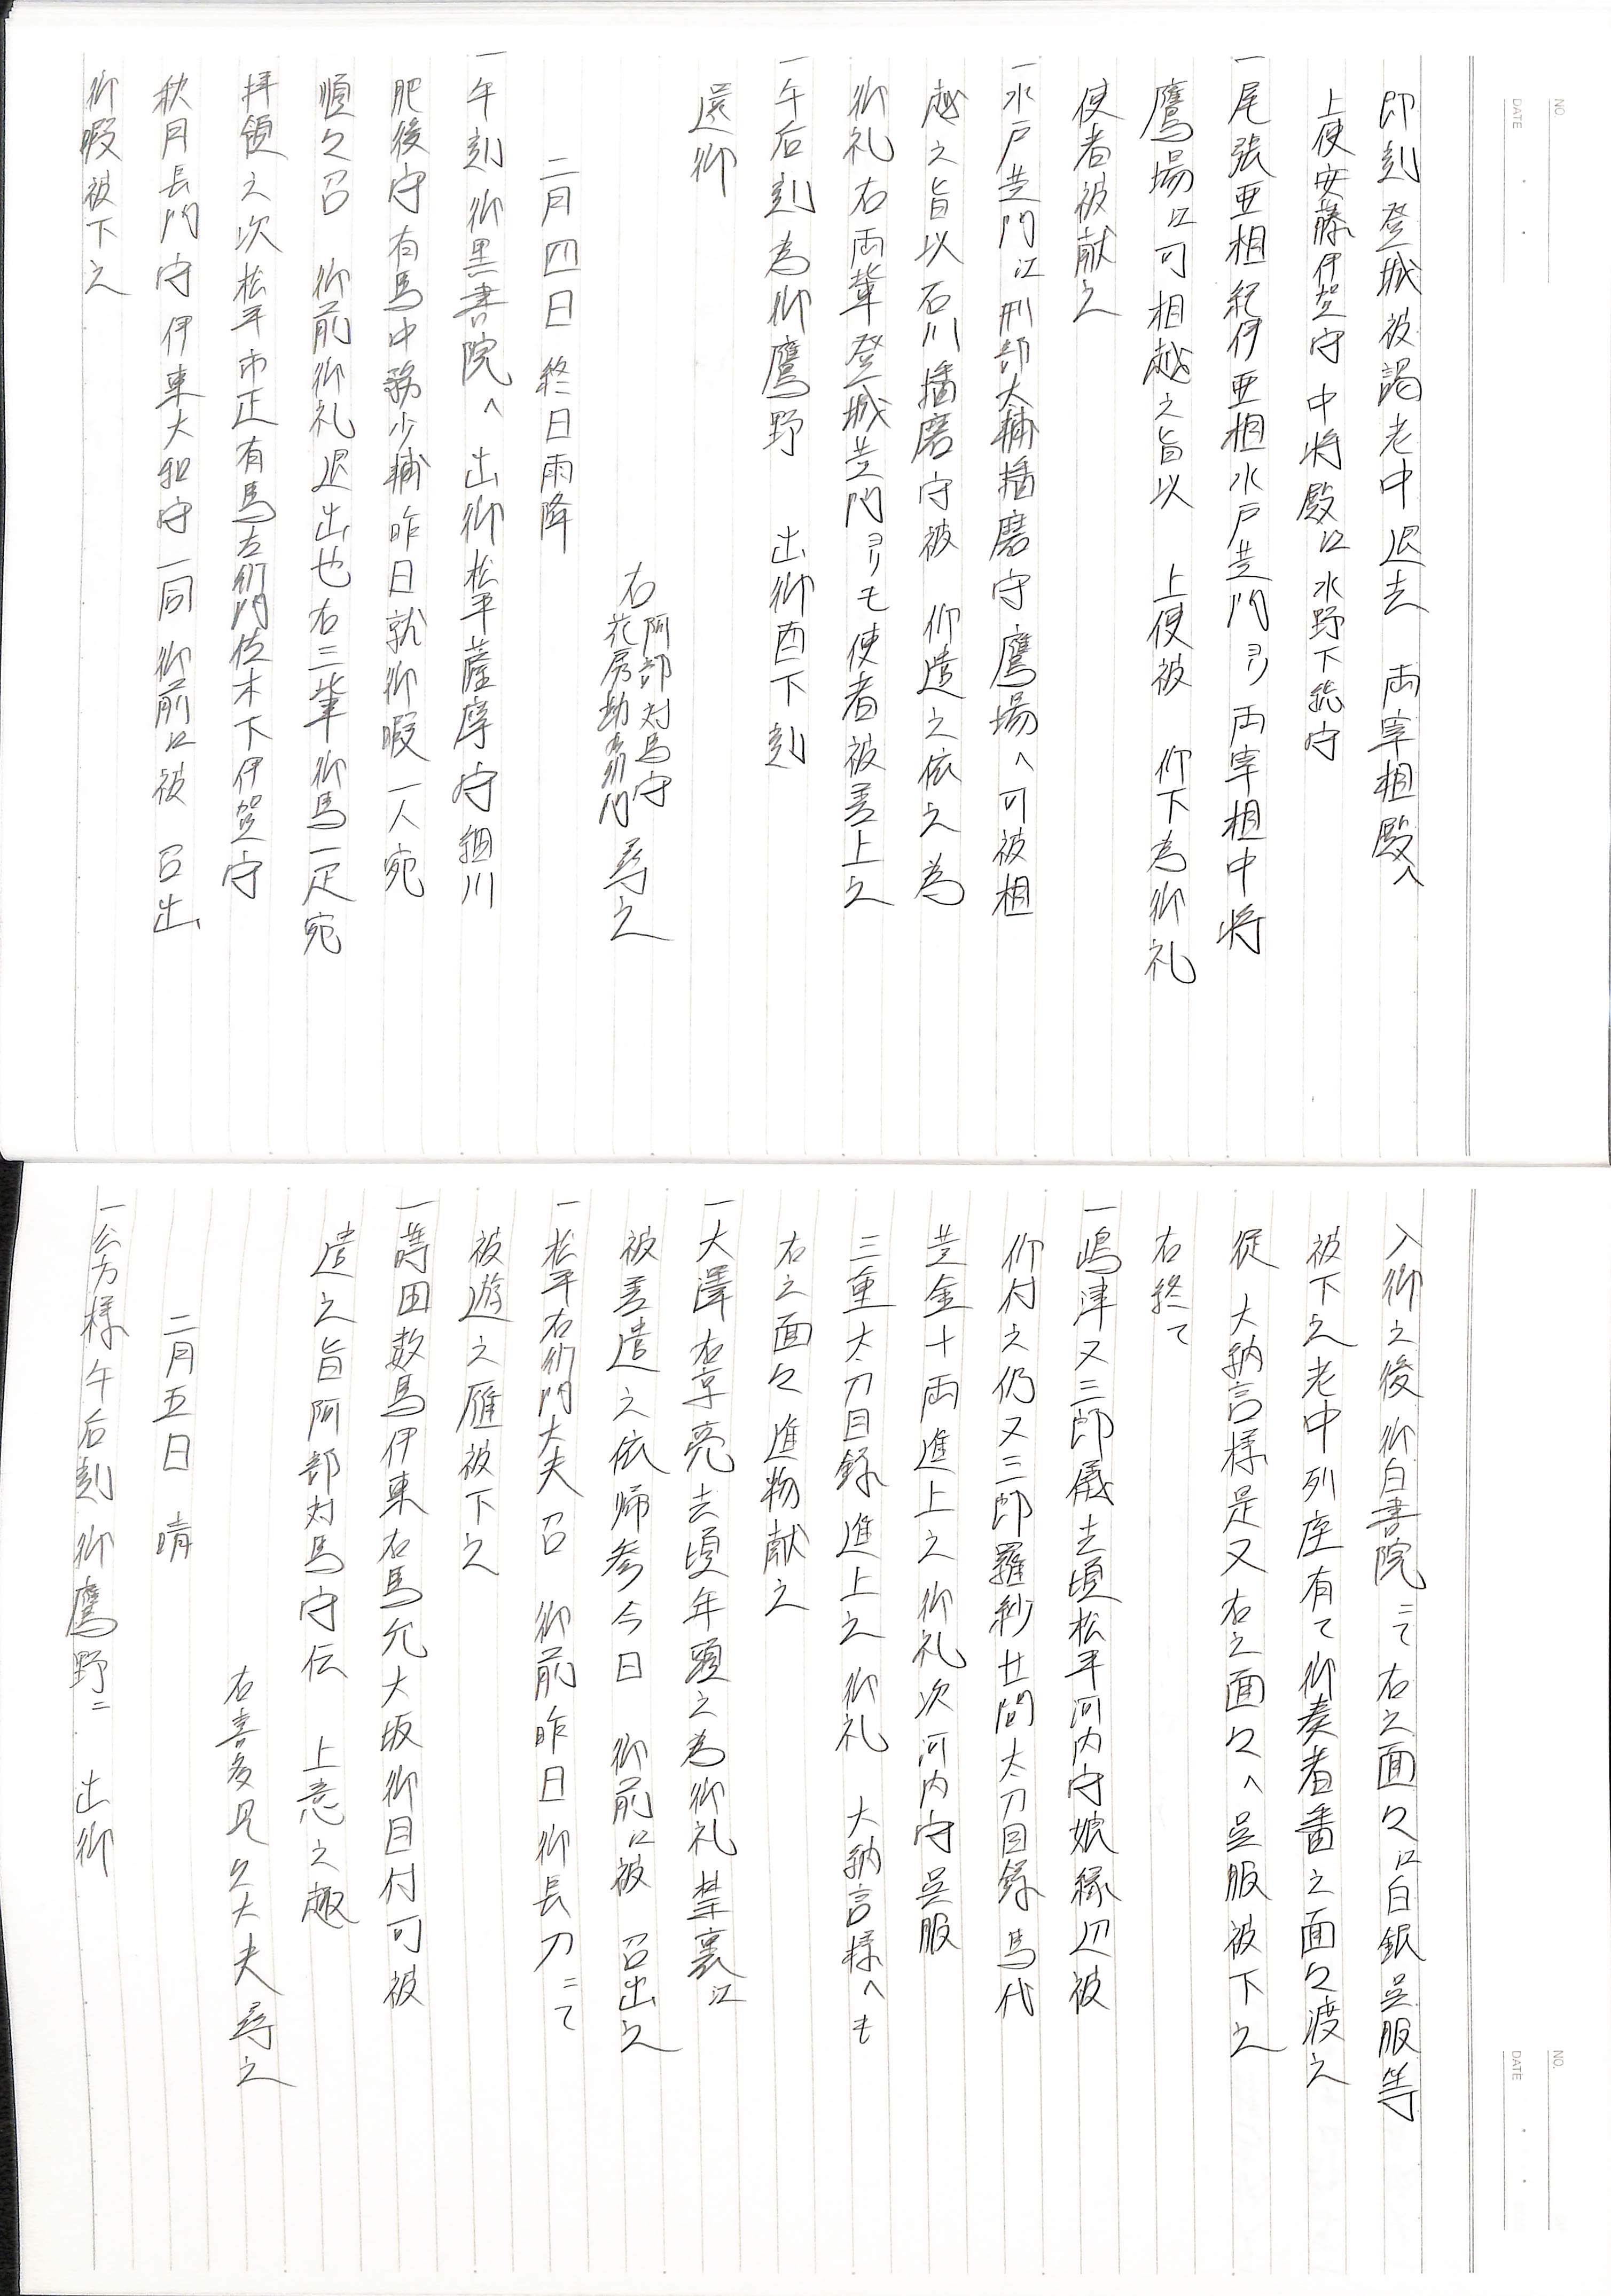 NO.
DATE
即刻登城被謁老中退去　両宰相殿へ
上使安藤伊賀守中将殿江水野下総守
一尾張亜相紀伊亜相水戸黄門ヨリ両宰相中将
鷹場江可相越之旨以　上使被　仰下為御礼
使者被献之
一水戸黄門江刑部太輔播磨守鷹場へ可被相
越之旨以石川播磨守被　仰遣之依之為
御礼右両輩登城黄門ヨリモ使者被差上之
一午后刻為御鷹野　出御酉下刻
還御
右　阿部対馬守　花房勘右衛門　尋之
二月四日　終日雨降
一午刻御黒書院へ　出御松平薩摩守細川
肥後守有馬中務少輔昨日就御暇一人宛
順々召　御前御礼退出也右三輩御馬一疋宛
拝領之次松平市正有馬左衛門佐木下伊賀守
秋月長門守伊東大和守一同御前江被　召出
御暇被下之
NO.
DATE
入御之後御白書院ニて右之面々江白銀呉服等
被下之老中列座有て御奏者番之面々渡之
従　大納言様是又右之面々へ呉服被下之
右終て
一嶋津又三郎儀去頃松平河内守娘縁辺被
仰付之仍又三郎羅紗廿間太刀目録馬代
黄金十両進上之御礼次河内守呉服
三重太刀目録進上之御礼　大納言様へも
右之面々進物献之
一大澤右京亮去頃年頭之為御礼禁裏江
被差遣之依帰参今日　御前江被　召出之
一松平右衛門大夫召　御前昨日御長刀ニて
被遊之雁被下之
一蒔田数馬伊東右馬允大坂御目付可被
遣之旨阿部対馬守伝　上意之趣
右喜多見久大夫尋之
二月五日　晴
一公方様午后刻御鷹野ニ　出御